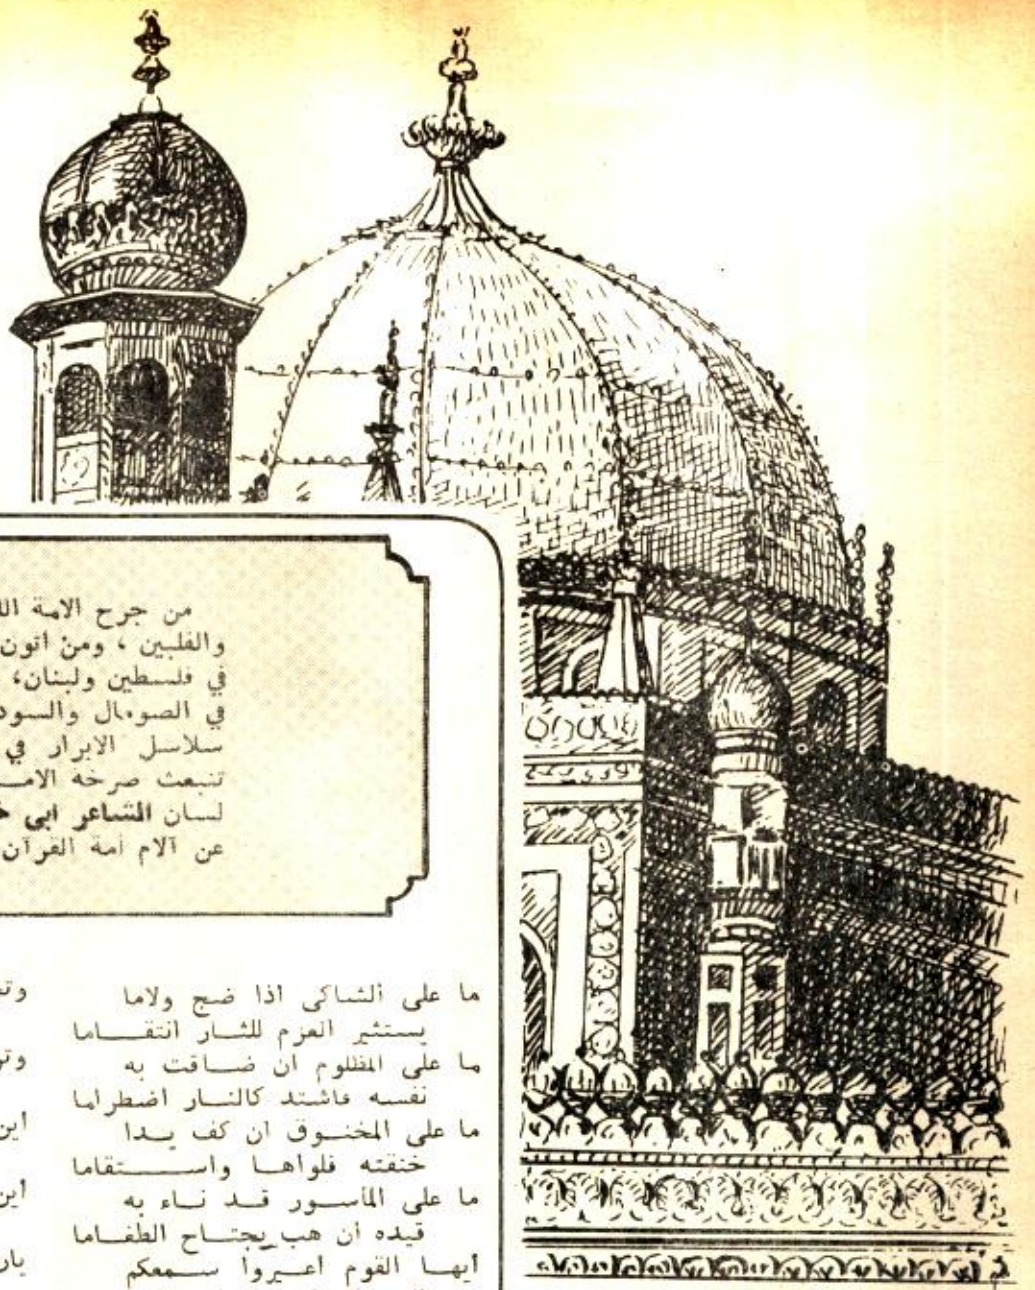 من جرح الامة
والفلبين ، ومن اتون
في فلسطين ولبنان،
في الصومال والسود
سلاسل الابرار في
تنبعث صرخة الامـ
لسان الشاعر ابى
عن آلام امة القرآن
ما على الشاكى اذا ضج ولاما
يستثير العزم للثار انتقاما
ما على المظلوم ان ضاقت به
نفسه فاشتد كالنار اضطراما
ما على المخنوق ان كف يدا
خنقته فلواها واستقاما
ما على المأسور قد ناء به
قيده ان هب يجتاح الطغاما
أيها القوم أعيروا سمعكم
أين
أين